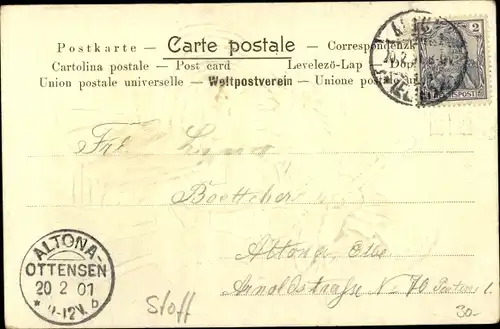 Postkarte — Carte postale — Correspondenzk
Cartolina postale — Post card Levelezö-Lap —
Union postale universelle — Weltpostverein — Unione postale
2
REICHSPOST
Frl.
Boettcher
Altona, Otts
Arnoldstraße No 70 Parterre l.
ALTONA-
OTTENSEN
20 2 01
* 11-12V. b
Stoff
30-